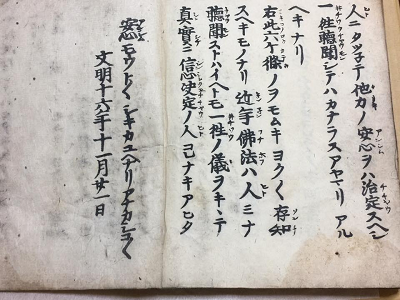 人ニタツネテ他力ノ安心ヲハ治定スヘシ
一往聴聞シテハカナラスアヤマリアル
ヘキナリ
右此六ケ條ノヲモムキヨク〱存知
スヘキモノナリ近年佛法ハ人ミナ
聴聞ストハイヘトモ一往ノ儀ヲキヽテ
真實ニ信心决定ノ人コレナキアヒタ
安心モウト〱シキカユヘナリアナカシコ〱
文明十六年十一月廿一日